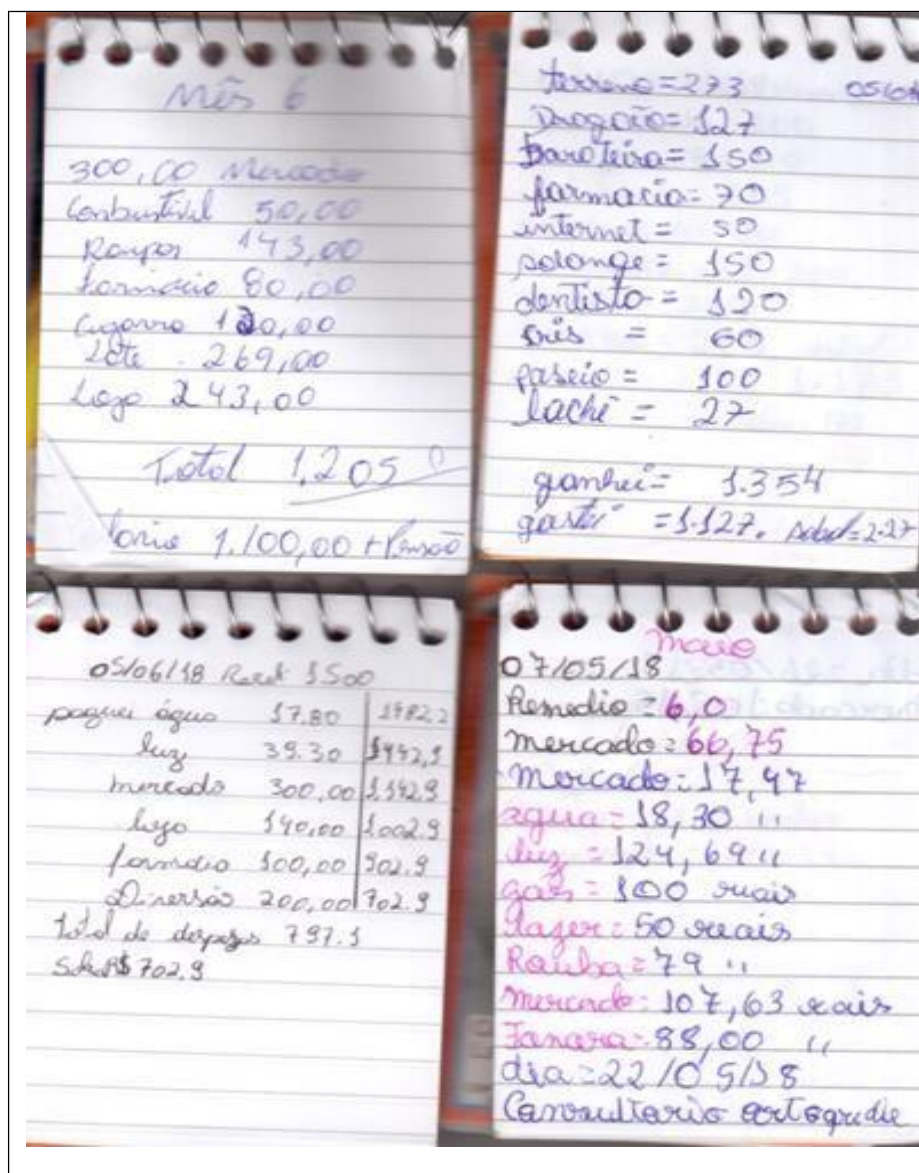 Mês 6
300,00 Mercado
Conbustivel 50,00
Roupas 143,00
Farmácia 80,00
Cigarro 120,00
Lote 269,00
Loja 243,00
Total 1.205
1.100,00 + Pensão
terreno = 273
Drogoão = 127
= 150
farmacia = 70
internet = 50
solange = 150
dentista = 120
= 60
paseio = 100
lachi = 27
ganhei = 1.354
gastei = 1.127. = 2.27
05/06/18 1500
paguei água 17.80 1482.2
luz 39.30 1442,9
mercado 300,00 1.142.9
loja 140,00 1.002.9
farmacia 100,00 902.9
Diversão 200,00 702.9
Total de 797.1
R$ 702.9
maio
07/05/18
Remedio = 6,0
mercado = 66,75
mercado = 17,47
agua = 18,30 11
luz = 124,69 11
gas = 100 reais
lazer = 50 reais
= 79 11
mercado = 107,63 reais
Janara = 88,00 11
dia = 22/05/18